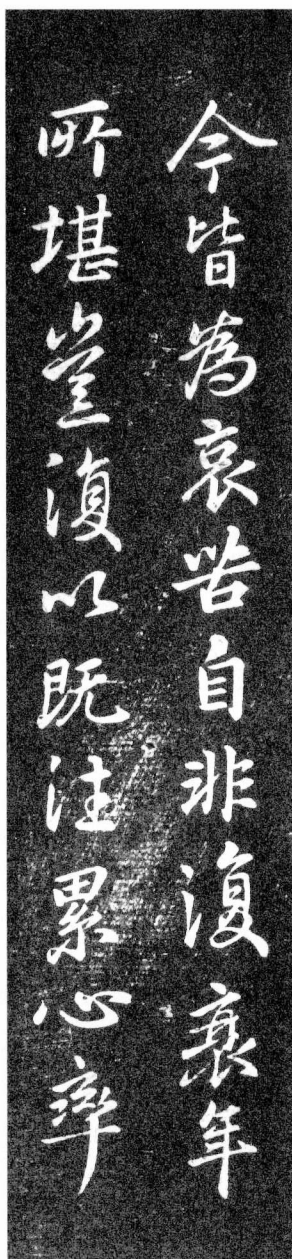 今皆為哀苦自非復衰年
所堪豈復以既往累心率